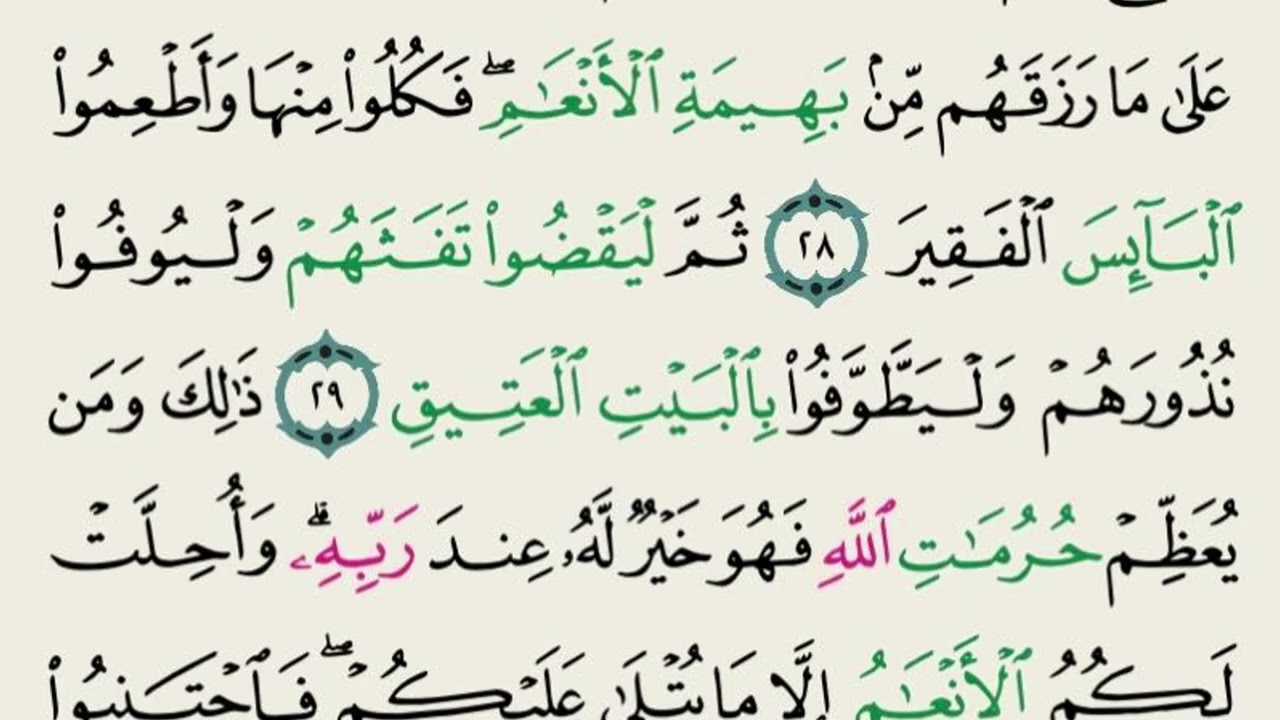 عَلَىٰ مَا رَزَقَهُم مِّنۢ بَهِيمَةِ ٱلْأَنْعَـٰمِ ۖ فَكُلُوا۟ مِنْهَا وَأَطْعِمُوا۟
ٱلْبَآئِسَ ٱلْفَقِيرَ ٢٨ ثُمَّ لْيَقْضُوا۟ تَفَثَهُمْ وَلْيُوفُوا۟
نُذُورَهُمْ وَلْيَطَّوَّفُوا۟ بِٱلْبَيْتِ ٱلْعَتِيقِ ٢٩ ذَٰلِكَ وَمَن
يُعَظِّمْ حُرُمَـٰتِ ٱللَّهِ فَهُوَ خَيْرٌ لَّهُۥ عِندَ رَبِّهِۦ ۗ وَأُحِلَّتْ
لَكُمُ ٱلْأَنْعَـٰمُ إِلَّا مَا يُتْلَىٰ عَلَيْكُمْ ۖ فَٱجْتَنِبُوا۟